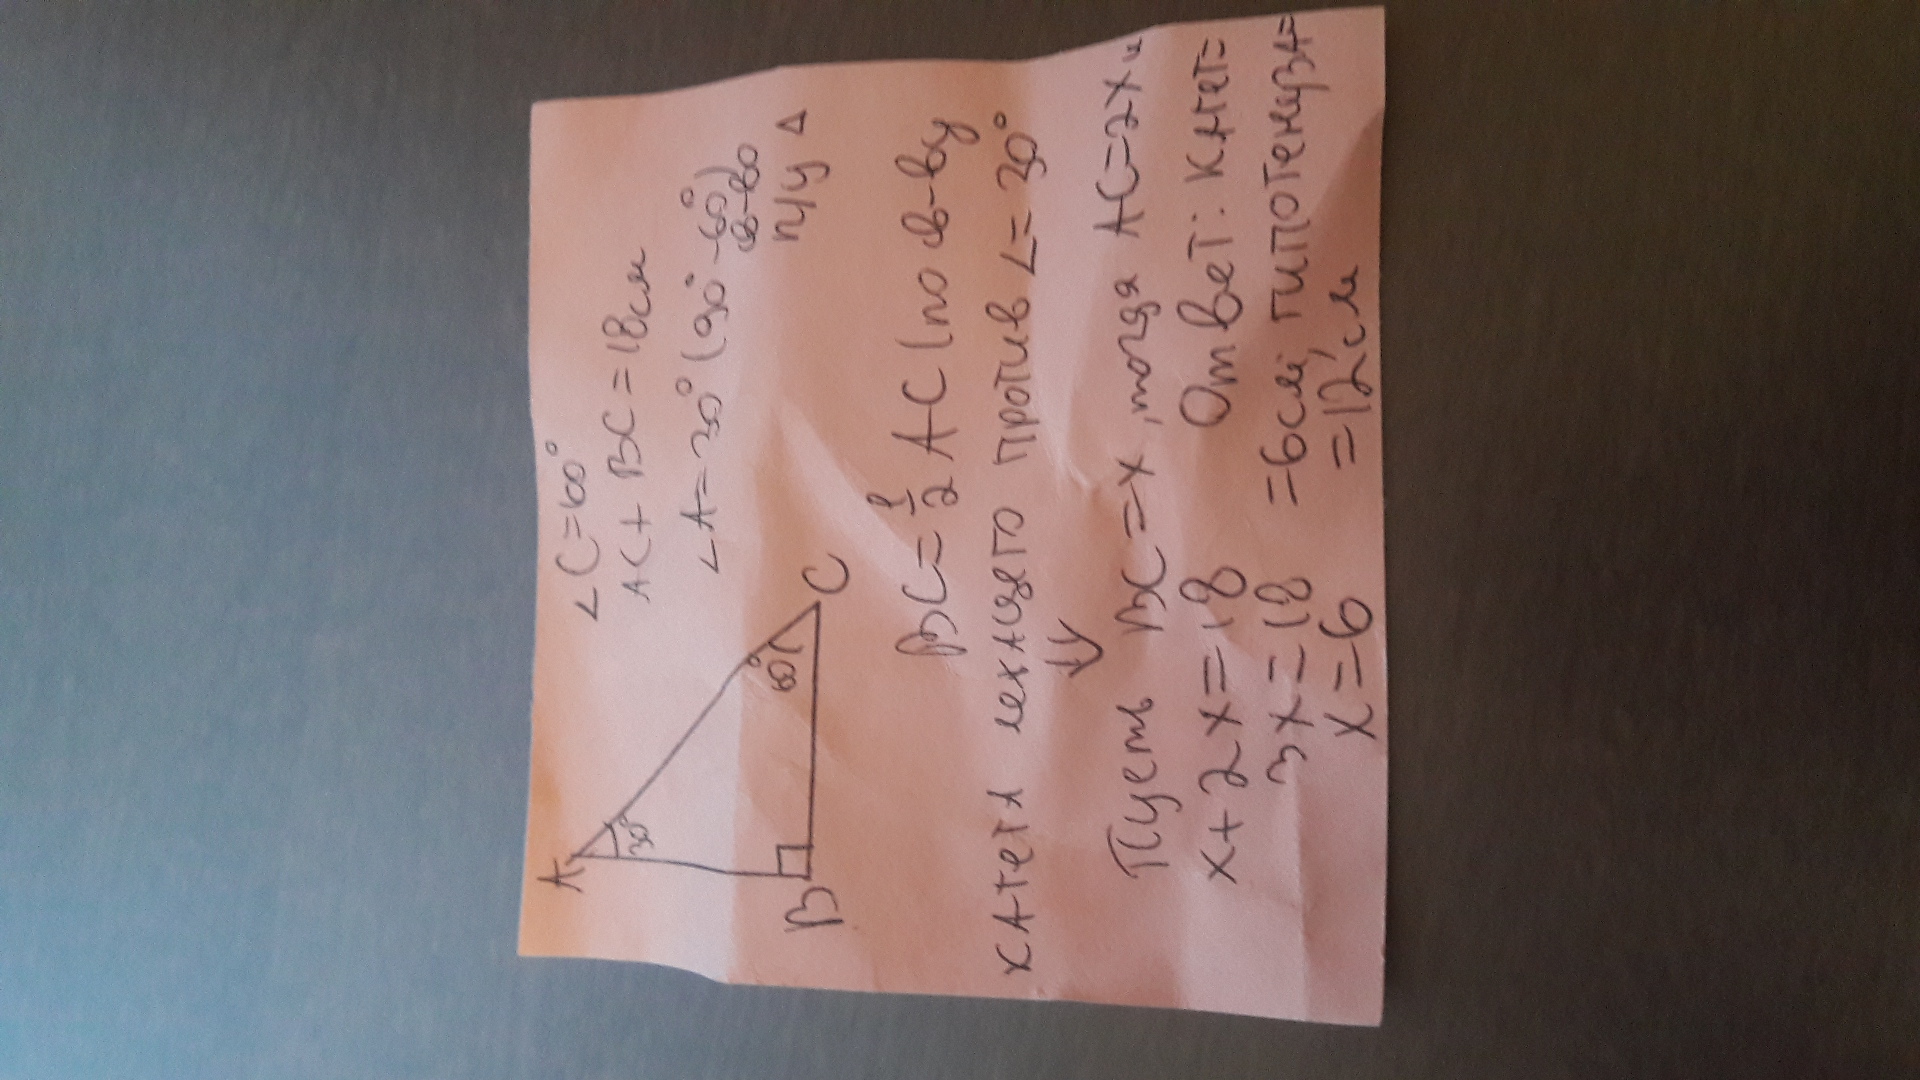 ∠C=60°
AC+BC=18см
∠A=30° (90°-60°)
св-во
п/у Δ
A
30°
60°
B
C
BC=1/2 AC (по св-ву
катета лежащего против ∠=30°
⇓
Пусть BC=x, тогда AC=2x и
x+2x=18
3x=18
x=6
Ответ: катет=
=6см, гипотенуза=
=12см